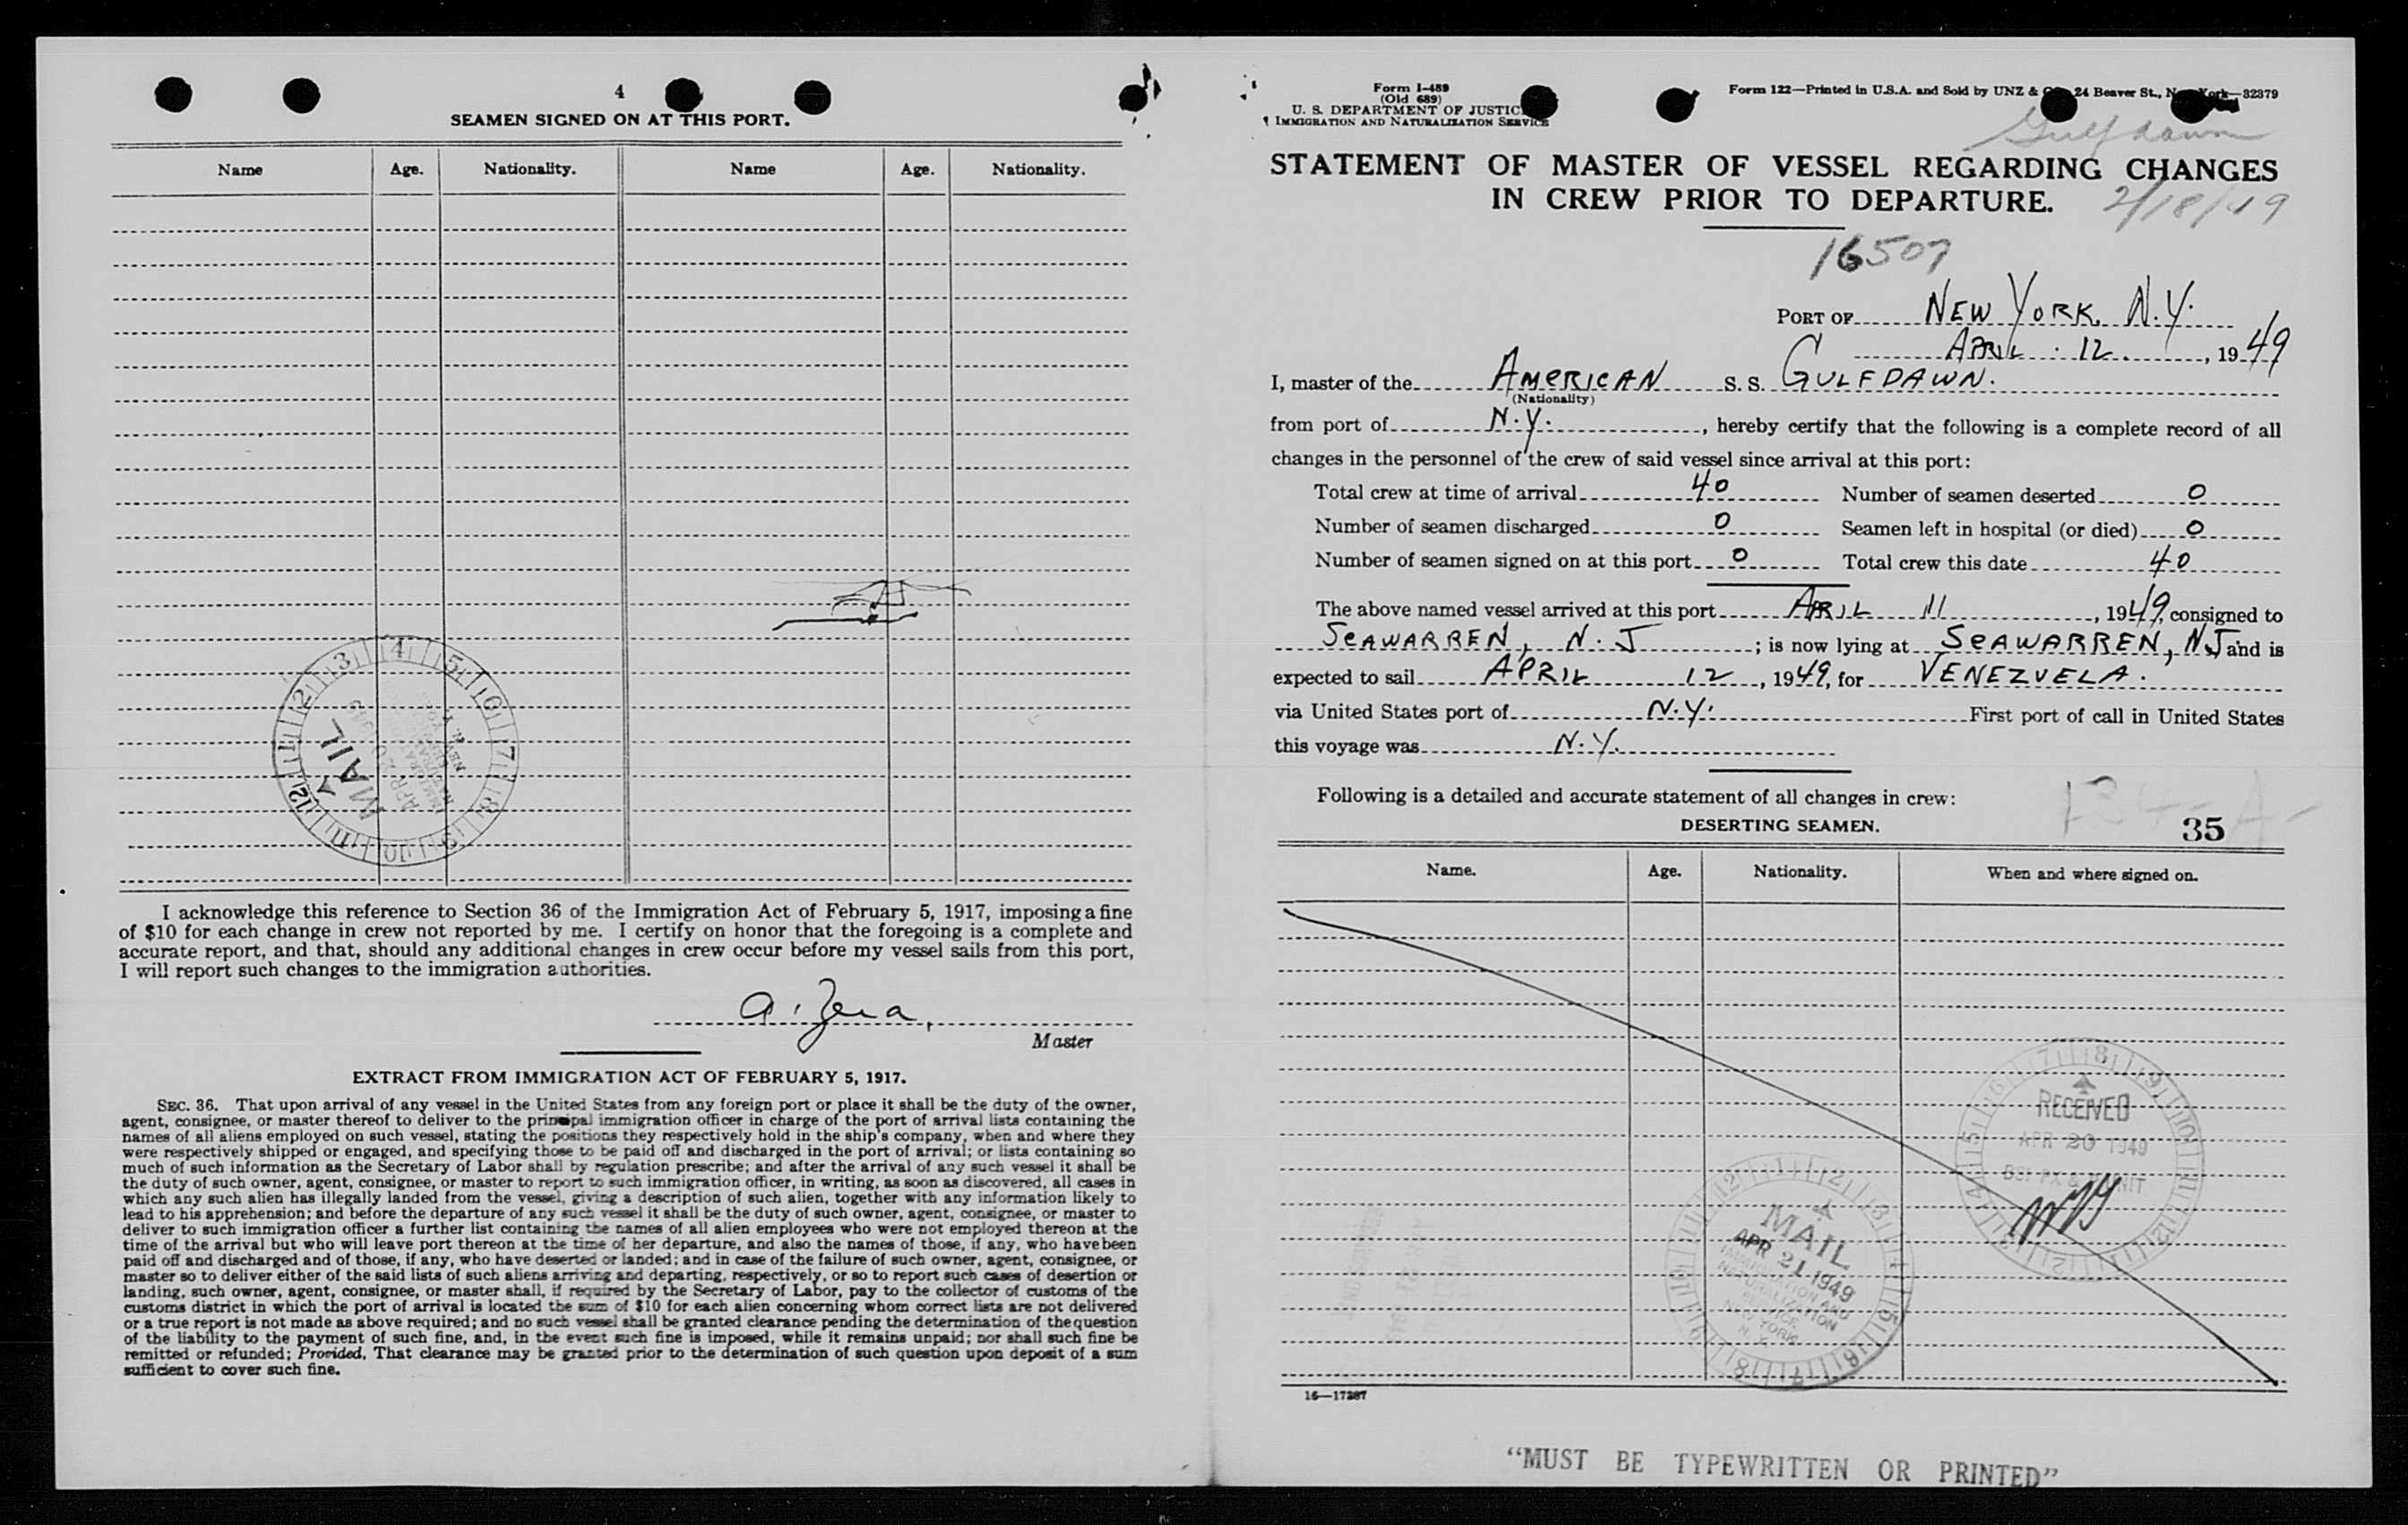 4
SEAMEN SIGNED ON AT THIS PORT.
Name Age. Nationality. Name Age. Nationality.
1 2 3 4 5 6 7 8 9 10 11 12
MAIL
APR
I acknowledge this reference to Section 36 of the Immigration Act of February 5, 1917, imposing a fine
of $10 for each change in crew not reported by me. I certify on honor that the foregoing is a complete and
accurate report, and that, should any additional changes in crew occur before my vessel sails from this port,
I will report such changes to the immigration authorities.
Master
EXTRACT FROM IMMIGRATION ACT OF FEBRUARY 5, 1917.
SEC. 36. That upon arrival of any vessel in the United States from any foreign port or place it shall be the duty of the owner,
agent, consignee, or master thereof to deliver to the principal immigration officer in charge of the port of arrival lists containing the
names of all aliens employed on such vessel, stating the positions they respectively hold in the ship's company, when and where they
were respectively shipped or engaged, and specifying those to be paid off and discharged in the port of arrival; or lists containing so
much of such information as the Secretary of Labor shall by regulation prescribe; and after the arrival of any such vessel it shall be
the duty of such owner, agent, consignee, or master to report to such immigration officer, in writing, as soon as discovered, all cases in
which any such alien has illegally landed from the vessel, giving a description of such alien, together with any information likely to
lead to his apprehension; and before the departure of any such vessel it shall be the duty of such owner, agent, consignee, or master to
deliver to such immigration officer a further list containing the names of all alien employees who were not employed thereon at the
time of the arrival but who will leave port thereon at the time of her departure, and also the names of those, if any, who have been
paid off and discharged and of those, if any, who have deserted or landed; and in case of the failure of such owner, agent, consignee, or
master so to deliver either of the said lists of such aliens arriving and departing, respectively, or so to report such cases of desertion or
landing, such owner, agent, consignee, or master shall, if required by the Secretary of Labor, pay to the collector of customs of the
customs district in which the port of arrival is located the sum of $10 for each alien concerning whom correct lists are not delivered
or a true report is not made as above required; and no such vessel shall be granted clearance pending the determination of the question
of the liability to the payment of such fine, and, in the event such fine is imposed, while it remains unpaid; nor shall such fine be
remitted or refunded; Provided, That clearance may be granted prior to the determination of such question upon deposit of a sum
sufficient to cover such fine.
Form I-489
(Old 689)
U. S. DEPARTMENT OF JUSTIC
IMMIGRATION AND NATURALIZATION SERVICE
Form 122—Printed in U.S.A. and Sold by UNZ & 24 Beaver St., N York—32379
Gulfdawn
STATEMENT OF MASTER OF VESSEL REGARDING CHANGES
IN CREW PRIOR TO DEPARTURE.
2/18/49
16507
PORT OF NEW YORK, N.Y.
APRIL 12, 1949
I, master of the AMERICAN S. S. GULFDAWN.
(Nationality)
from port of N.Y., hereby certify that the following is a complete record of all
changes in the personnel of the crew of said vessel since arrival at this port:
Total crew at time of arrival 40 Number of seamen deserted 0
Number of seamen discharged 0 Seamen left in hospital (or died) 0
Number of seamen signed on at this port 0 Total crew this date 40
The above named vessel arrived at this port APRIL 11, 1949, consigned to
SEAWARREN, N.J; is now lying at SEAWARREN, N.J and is
expected to sail APRIL 12, 1949, for VENEZUELA.
via United States port of N.Y. First port of call in United States
this voyage was N.Y.
Following is a detailed and accurate statement of all changes in crew:
DESERTING SEAMEN. 35
Name. Age. Nationality. When and where signed on.
RECEIVED
APR 20 1949
MAIL
APR 21 1949
IMMIGRATION AND
NATURALIZATION
SERVICE
NEW YORK
N. Y.
16—17287
"MUST BE TYPEWRITTEN OR PRINTED"